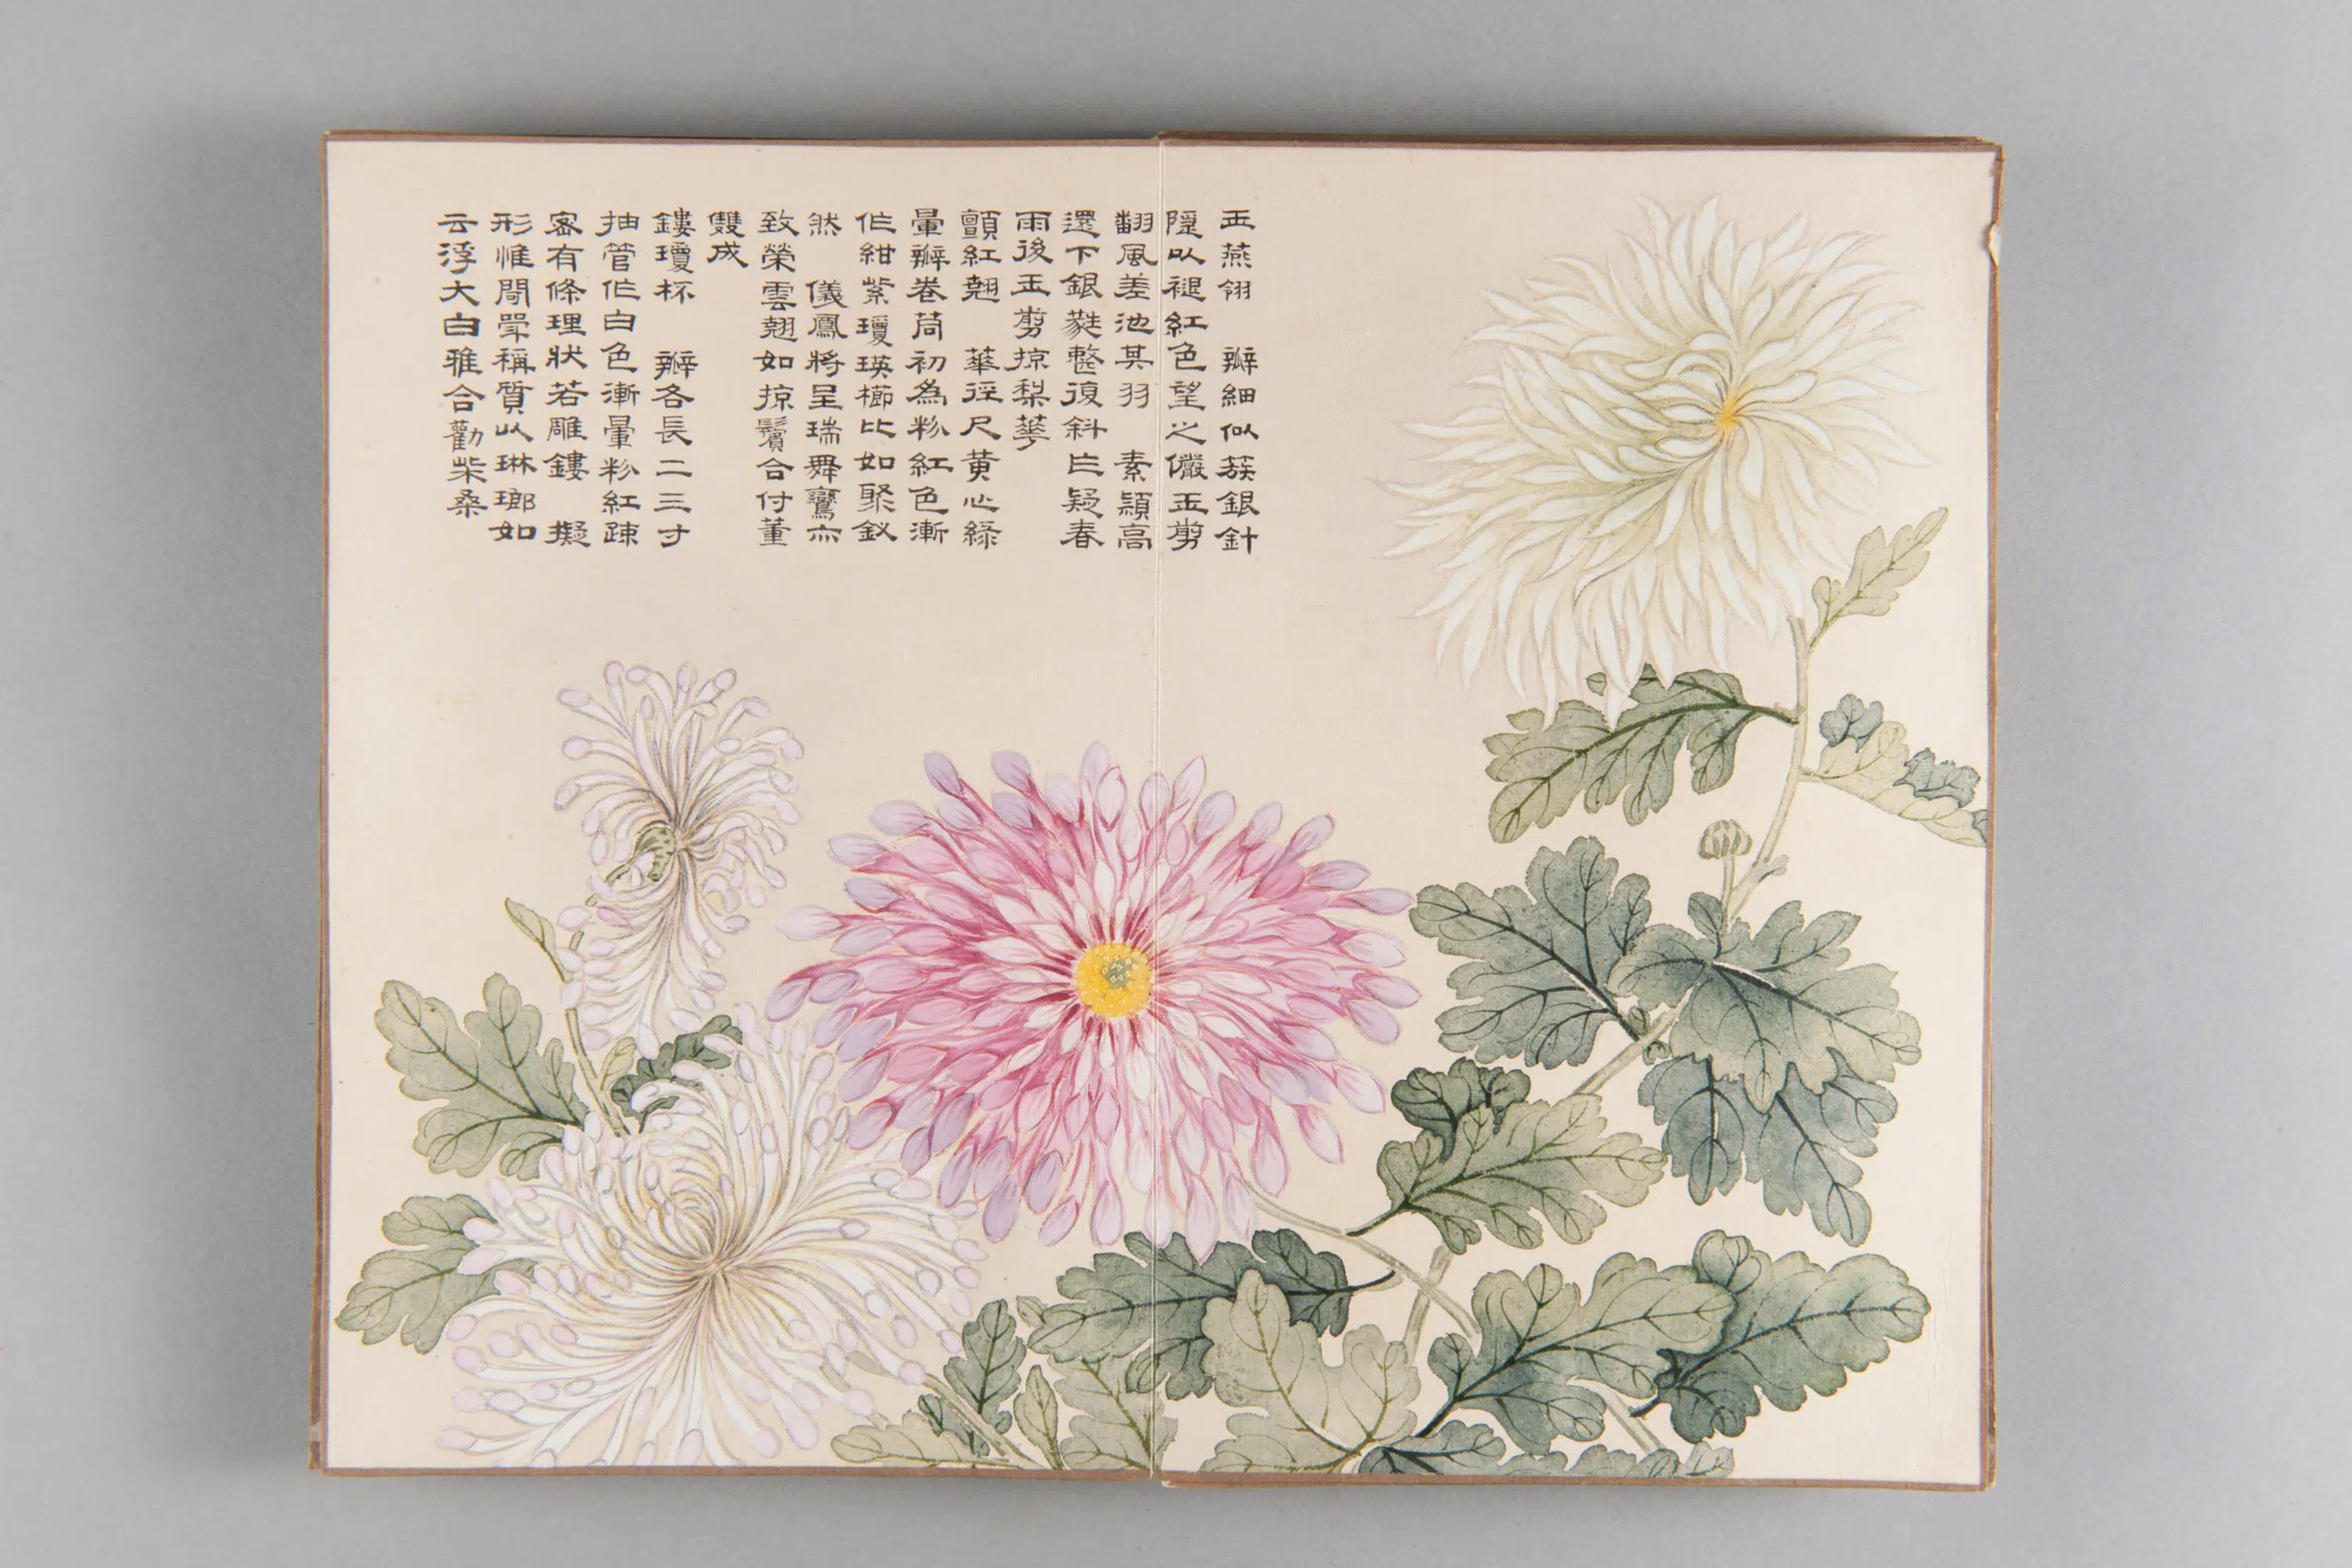 玉燕翎 瓣細似簇銀針
隱以褪紅色望之儼玉剪
翻風差池其羽 素顈高
還下銀蕤整復斜只疑春
雨後玉剪掠梨蕚
顫紅翹 華徑尺黃心綠
暈瓣卷筒初為粉紅色漸
作紺紫瓊瑛櫛比如聚釵
然 儀鳳將呈瑞舞鸞亦
致榮雲翹如掠鬢合付董
雙成
鏤瓊杯 瓣各長二三寸
抽管作白色漸暈粉紅疎
密有條理狀若雕鏤 擬
形惟閜斝稱質以琳瑯如
云浮大白雅合勸柴桑